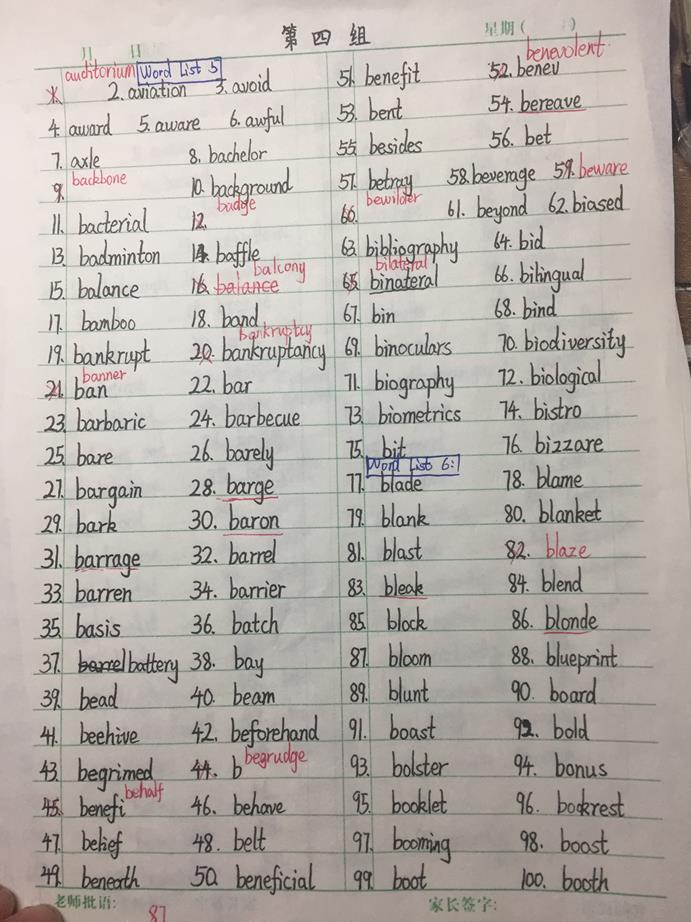 第四组
月 日 星期( )
auditorium Word List 5
1. 2. aviation 3. avoid
4. award 5. aware 6. awful
7. axle 8. bachelor
backbone
9. 10. background
badge
11. bacterial 12.
13. badminton 14. baffle
balcony
15. balance 16. balance
17. bamboo 18. band
bankruptcy
19. bankrupt 20. bankruptancy
banner
21. ban 22. bar
23. barbaric 24. barbecue
25. bare 26. barely
27. bargain 28. barge
29. bark 30. baron
31. barrage 32. barrel
33. barren 34. barrier
35. basis 36. batch
37. barrel battery 38. bay
39. bead 40. beam
41. beehive 42. beforehand
43. begrimed 44. b begrudge
behalf
45. benefi 46. behave
47. belief 48. belt
49. beneath 50. beneficial
benevolent
51. benefit 52. benev
53. bent 54. bereave
55. besides 56. bet
57. betray 58. beverage 59. beware
bewilder
60. 61. beyond 62. biased
63. bibliography 64. bid
bilateral
65. binateral 66. bilingual
67. bin 68. bind
69. binoculars 70. biodiversity
71. biography 72. biological
73. biometrics 74. bistro
75. bit 76. bizzare
Word List 6:
77. blade 78. blame
79. blank 80. blanket
81. blast 82. blaze
83. bleak 84. blend
85. block 86. blonde
87. bloom 88. blueprint
89. blunt 90. board
91. boast 92. bold
93. bolster 94. bonus
95. booklet 96. bookrest
97. booming 98. boost
99. boot 100. booth
老师批语: 家长签字:
87